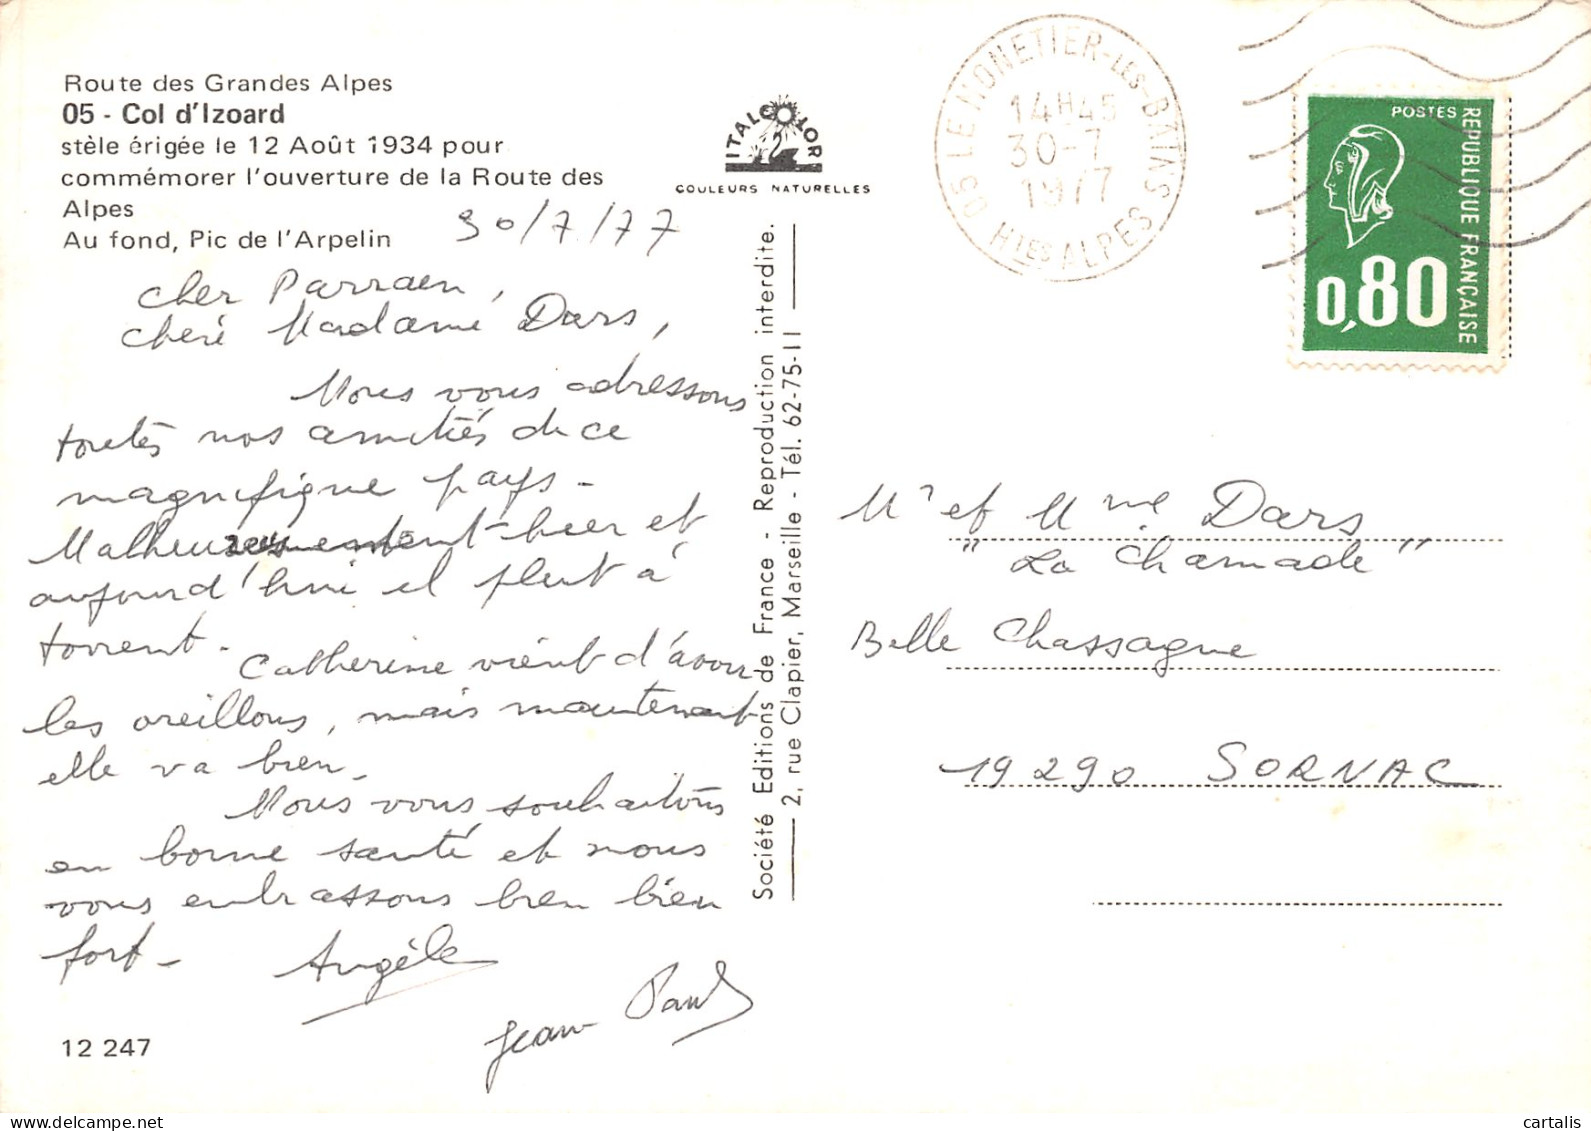 Route des Grandes Alpes
05 - Col d'Izoard
stèle érigée le 12 Août 1934 pour
commémorer l'ouverture de la Route des
Alpes
Au fond, Pic de l'Arpelin
30/7/77
Cher Parraen,
Cheré Madame Dars,
Nous vous adressons
toutes nos amitiés de ce
magnifique pays -
Malheureusement hier et
aujourd'hui il pleut à
torrent -
Catherine vient d'avoir
les oreillons, mais maintenant
elle va bien -
Nous vous souhaitons
en bonne santé et nous
vous embrassons bien bien
fort -
Angèle
Jean Paul
12 247
ITALCOLOR
COULEURS NATURELLES
Société Editions de France - Reproduction interdite.
2, rue Clapier, Marseille - Tél. 62-75-11
05 LE MONETIER-LES-BAINS
14H45
30-7
1977
HTES ALPES
POSTES
REPUBLIQUE FRANÇAISE
0,80
Mr et Mme Dars
"La Chamade"
Belle Chassagne
19290 SORNAC
cartalis
delcampe.net